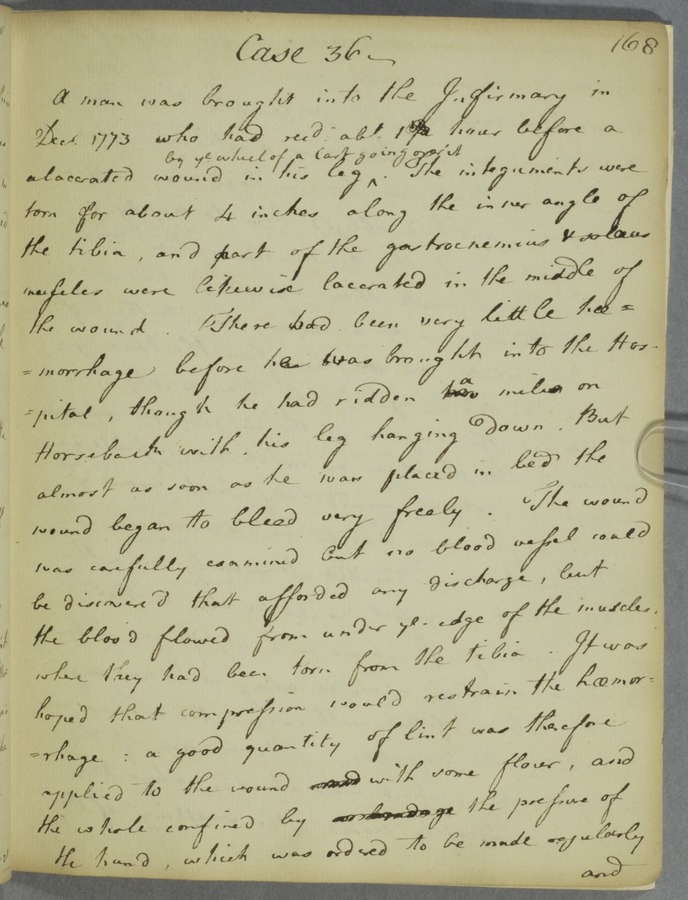 168
Case 36
A man was brought into the Infirmary in
Decr. 1773 who had recd. abt. hour before a
by ye wheel of a Cart going over it
a lacerated wound in his leg ^. The integuments were
torn for about 4 inches along the inner angle of
the tibia, and part of the gastrocnemius & solæus
muscles were likewise lacerated in the middle of
the wound. There had been very little hæ=
=morrhage before he was brought into the Hos-
=pital, though he had ridden a mile on
Horseback with his leg hanging down. But
almost as soon as he was placed in bed the
wound began to bleed very freely. The wound
was carefully examined but no blood vessel could
be discovered that afforded any discharge, but
the blood flowed from under ye. edge of the muscles.
where they had been torn from the tibia. It was
hoped that compression would restrain the hæmor=
=rhage: a good quantity of lint was therefore
applied to the wound with some flour, and
the whole confined by the pressure of
the hand, which was ordered to be made regularly
and